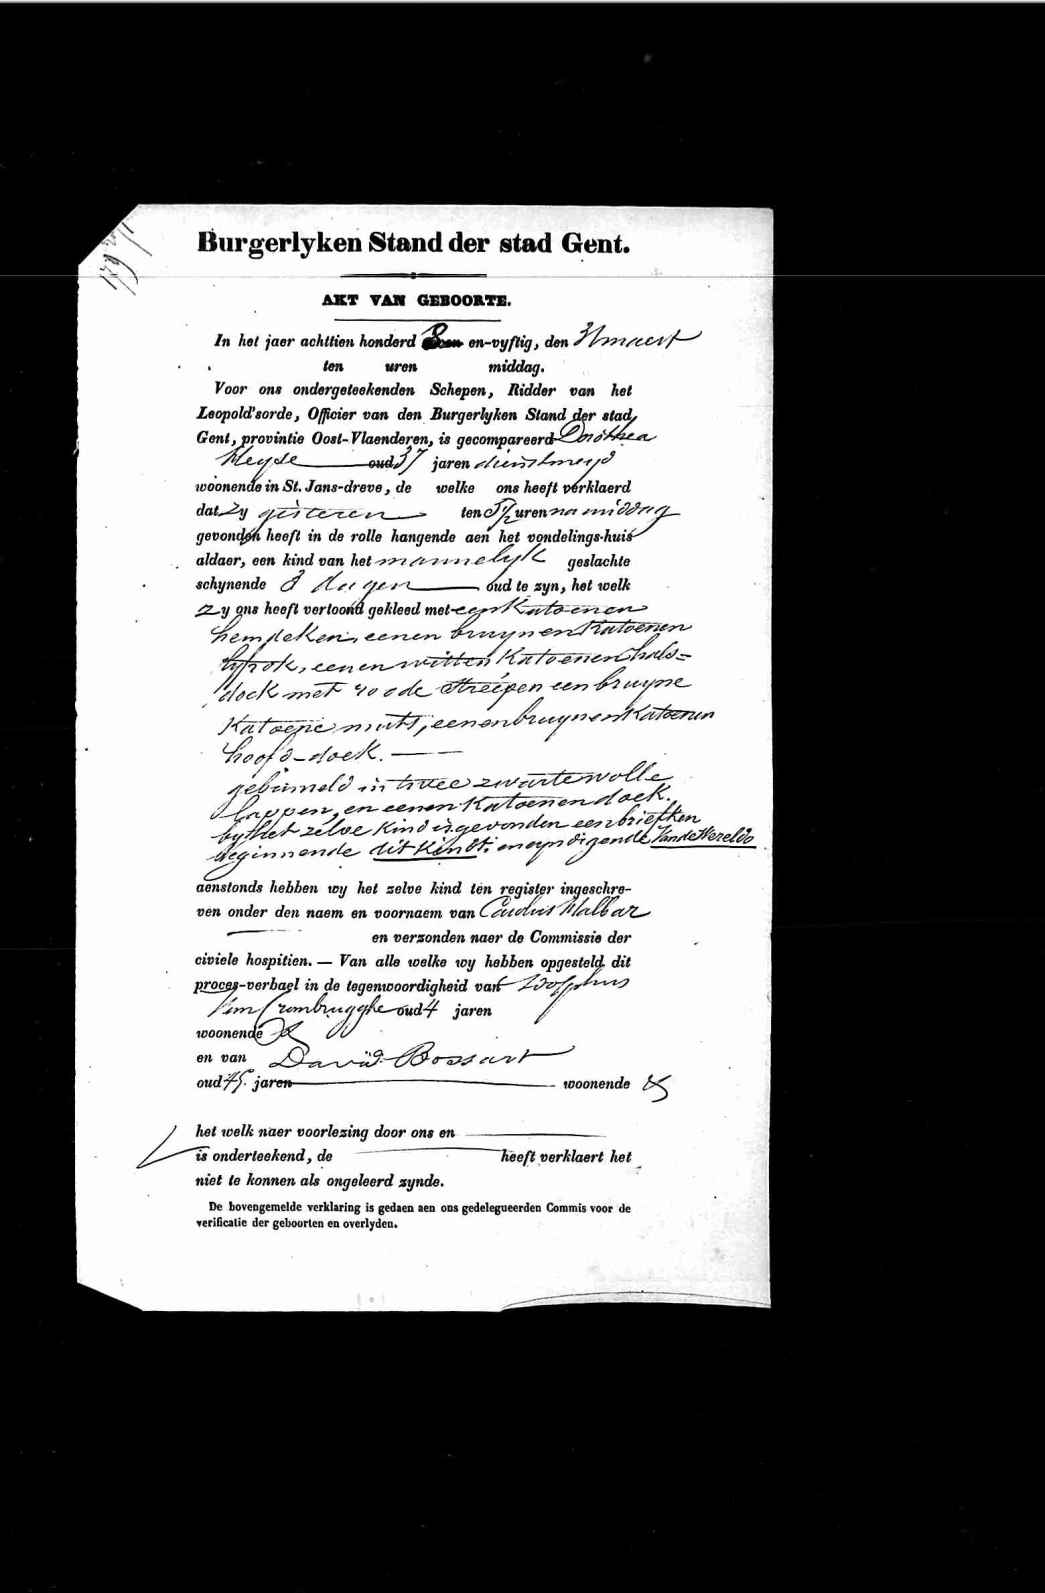 Burgerlyken Stand der stad Gent.
AKT VAN GEBOORTE.
In het jaer achttien honderd en-vyftig, den 31 maert
ten uren middag.
Voor ons ondergeteekenden Schepen, Ridder van het
Leopold'sorde, Officier van den Burgerlyken Stand der stad
Gent, provintie Oost-Vlaenderen, is gecompareerd Dorothea
Heyse oud 37 jaren dienstmeyd
woonende in St. Jans-dreve, de welke ons heeft verklaerd
dat zy gisteren ten uren na middag
gevonden heeft in de rolle hangende aen het vondelings-huis
aldaer, een kind van het mannelyk geslachte
schynende 3 dagen oud te zyn, het welk
zy ons heeft vertoond gekleed met een Katoenen
hemdeken, eenen bruynen Katoenen
lyfrok, eenen witten Katoenen hals=
doek met roode streepen een bruyne
Katoene muts, eenen bruynen Katoenen
hoofd-doek.
gebunseld in twee zwarte wolle
lappen, en eenen Katoenen doek.
by het zelve Kind is gevonden een briefken
beginnende dit Kindt: en eyndigende Van de Wereldo
aenstonds hebben wy het zelve kind ten register ingeschre-
ven onder den naem en voornaem van Carolus Malbar
en verzonden naer de Commissie der
civiele hospitien. — Van alle welke wy hebben opgesteld dit
proces-verbael in de tegenwoordigheid van
Van Crombrugghe oud 4 jaren
woonende
en van David Bossart
oud 45 jaren woonende
het welk naer voorlezing door ons en
is onderteekend, de heeft verklaert het
niet te konnen als ongeleerd zynde.
De bovengemelde verklaring is gedaen aen ons gedelegueerden Commis voor de
verificatie der geboorten en overlyden.